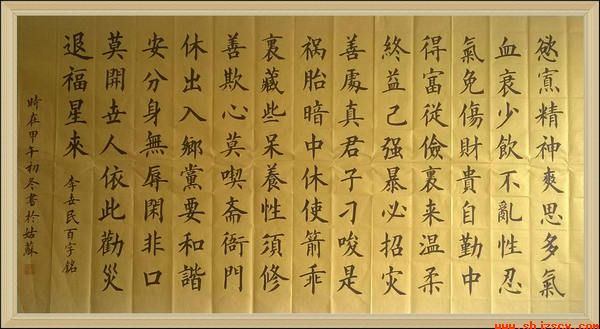 慾寡精神爽思多氣
血衰少飲不亂性忍
氣免傷財貴自勤中
得富從儉裏来温柔
終益己强暴必招灾
善處真君子刁唆是
祸胎暗中休使箭乖
裏藏些呆養性須修
善欺心莫喫斎衙門
休出入鄉黨要和諧
安分身無辱閑非口
莫開世人依此勸災
退福星來
李世民百字銘
時在甲午初冬書於姑蘇